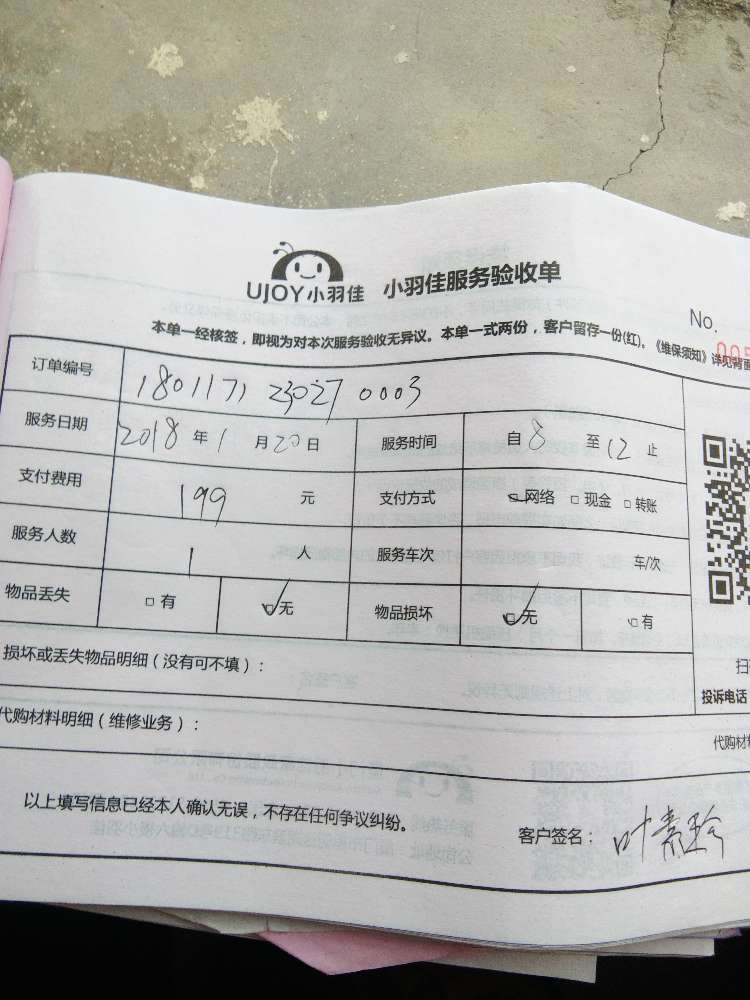 UJOY小羽佳 小羽佳服务验收单
No.
005
本单一经核签，即视为对本次服务验收无异议。本单一式两份，客户留存一份(红)。《维保须知》详见背面
订单编号 180117123027 0003
服务日期 2018年1月20日 服务时间 自8至12止
支付费用 199元 支付方式 网络 现金 转账
服务人数 1人 服务车次 车/次
物品丢失 有 无 物品损坏 无 有
损坏或丢失物品明细（没有可不填）： 扫
投诉电话
代购材料明细（维修业务）： 代购材料
以上填写信息已经本人确认无误，不存在任何争议纠纷。 客户签名：叶素